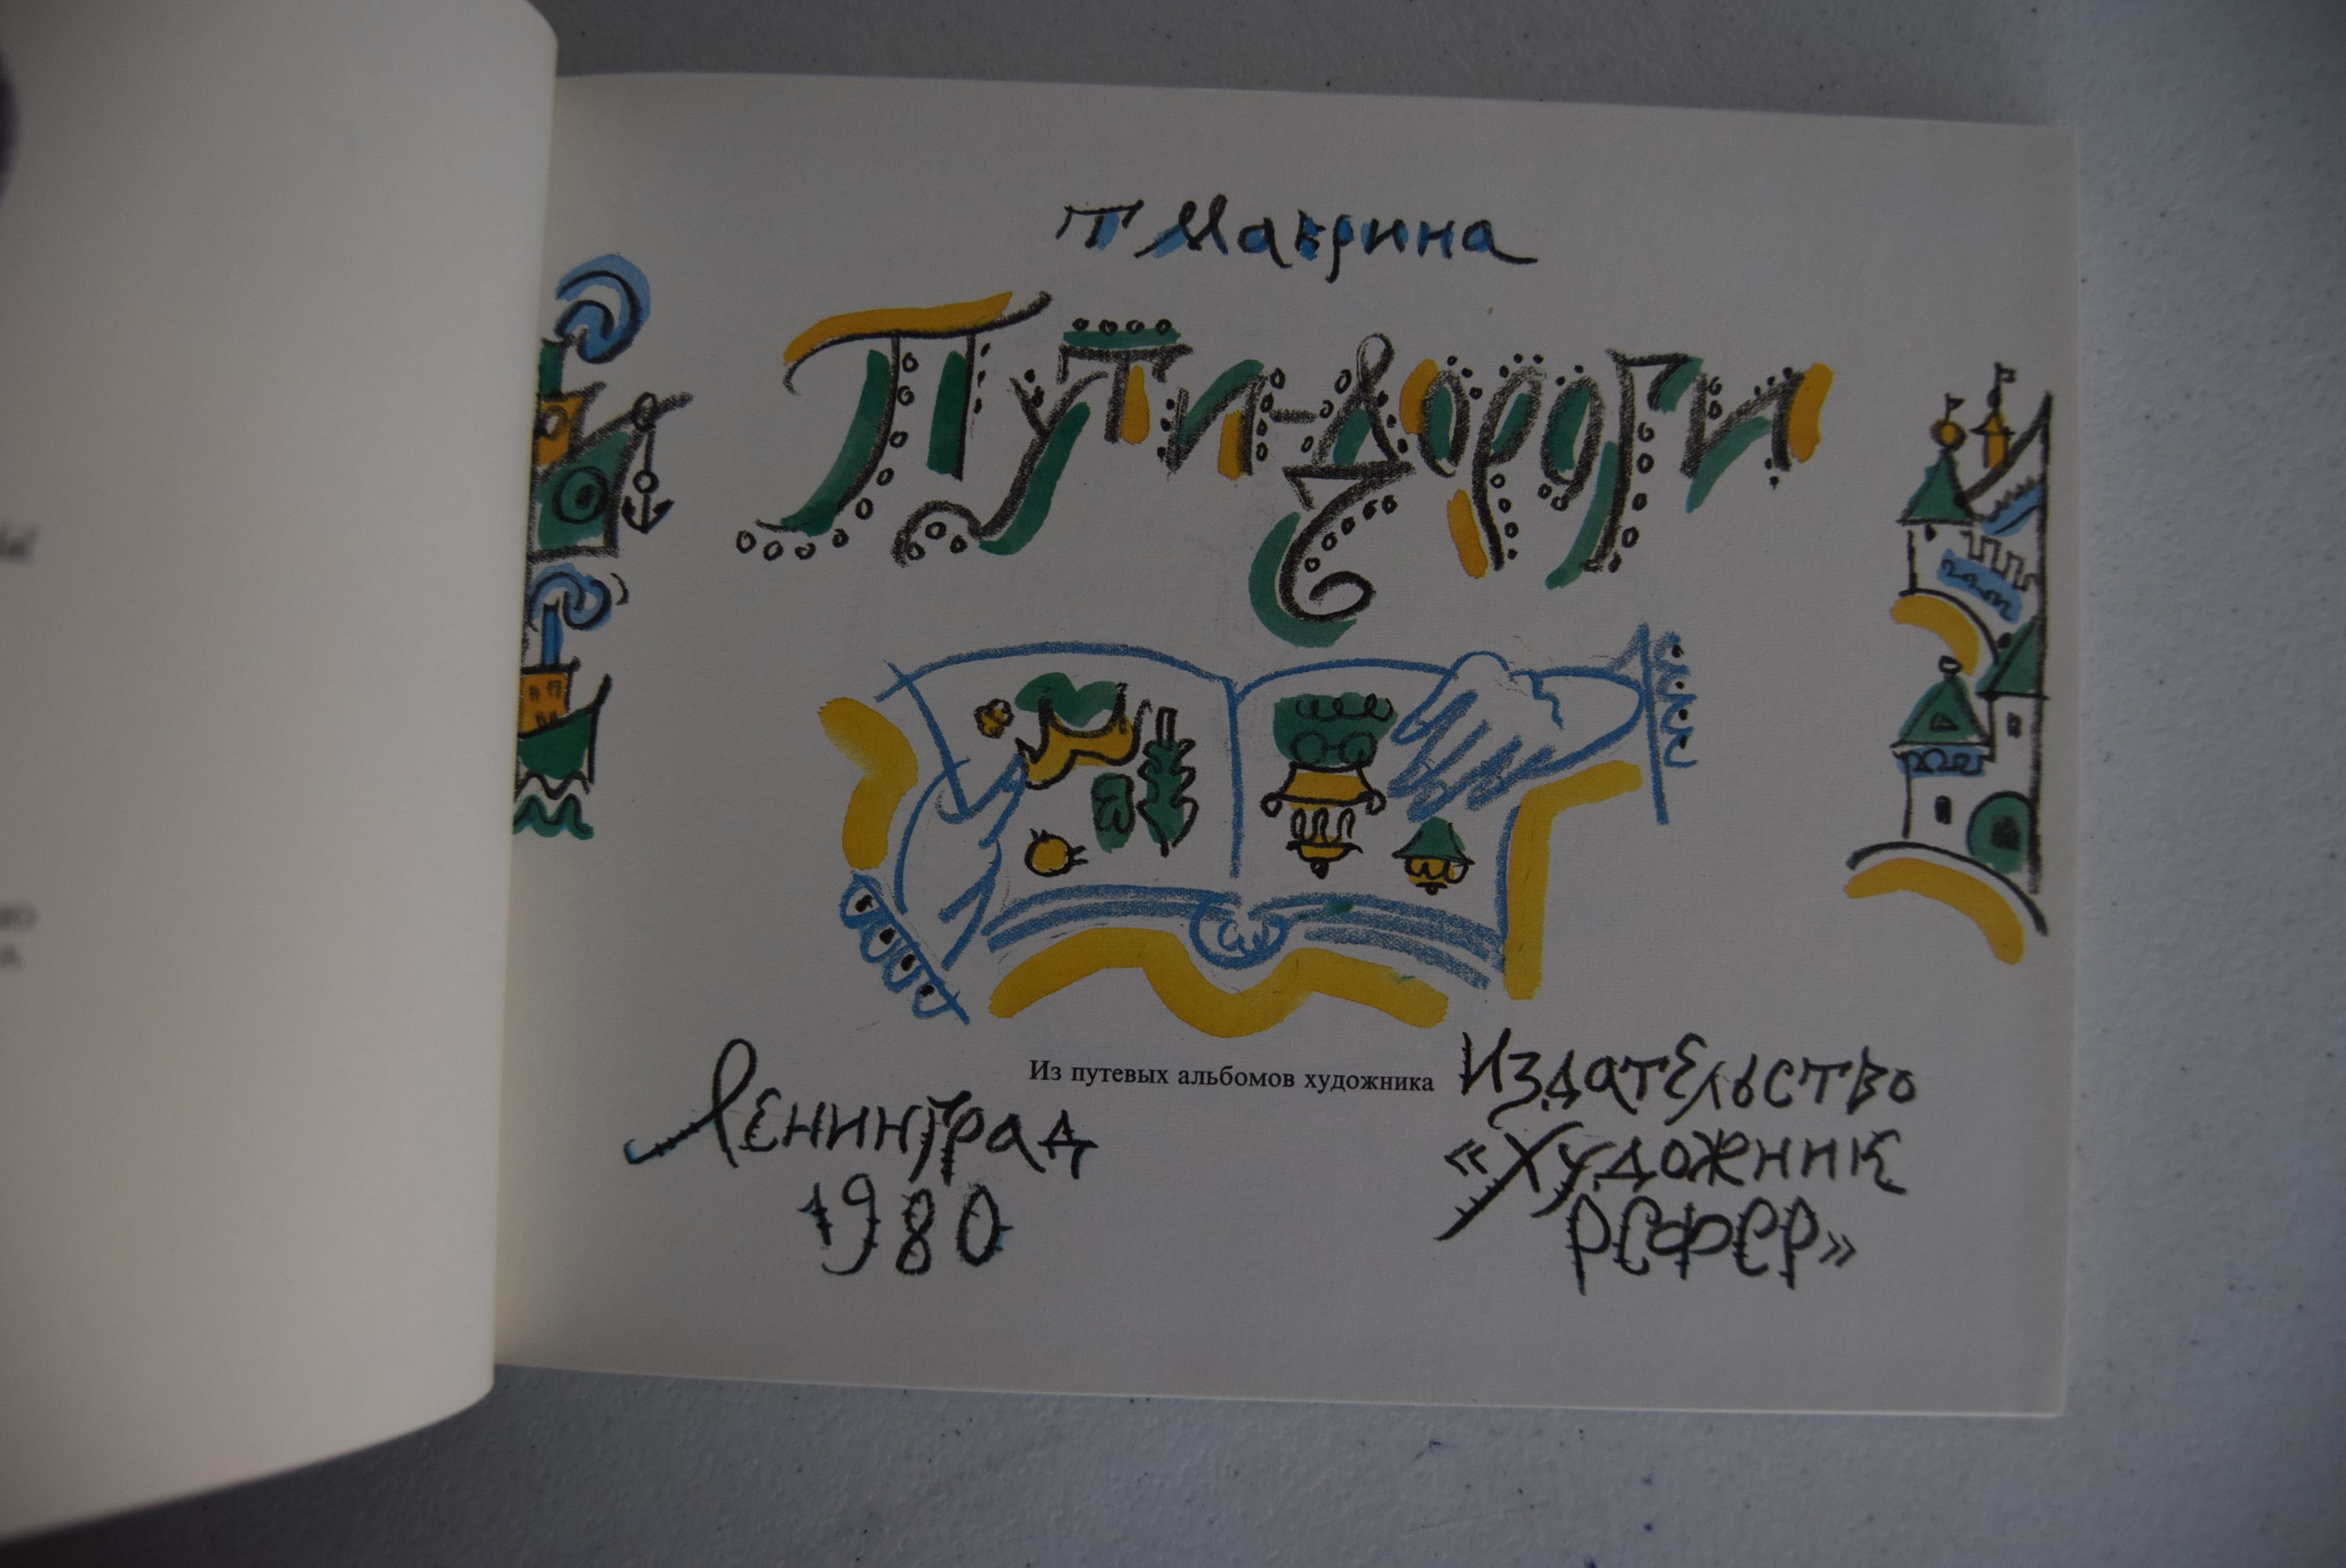 Т Маврина
Пути-дороги
Из путевых альбомов художника
Ленинград
1980
Издательство
«Художник
РСФСР»